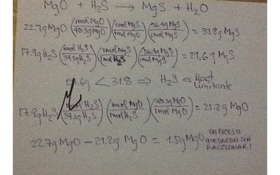 MgO + H₂S → MgS + H₂O
22.7g MgO (1 mol MgO / 40.3g MgO) (1 mol MgS / 1 mol MgO) (56.4g MgS / 1 mol MgS) = 31.8g MgS
17.9g H₂S (1 mol H₂S / 34.1g H₂S) (1 mol MgS / 1 mol H₂S) (56.4g MgS / 1 mol MgS) = 29.6g MgS
29.6g < 31.8 → H₂S es React limitante
17.9g H₂S (1 mol H₂S / 34.1g H₂S) (1 mol MgO / 1 mol H₂S) (40.3g MgO / 1 mol MgO) = 21.2g MgO
22.7g MgO − 21.2g MgO = 1.5g MgO EN EXCESO